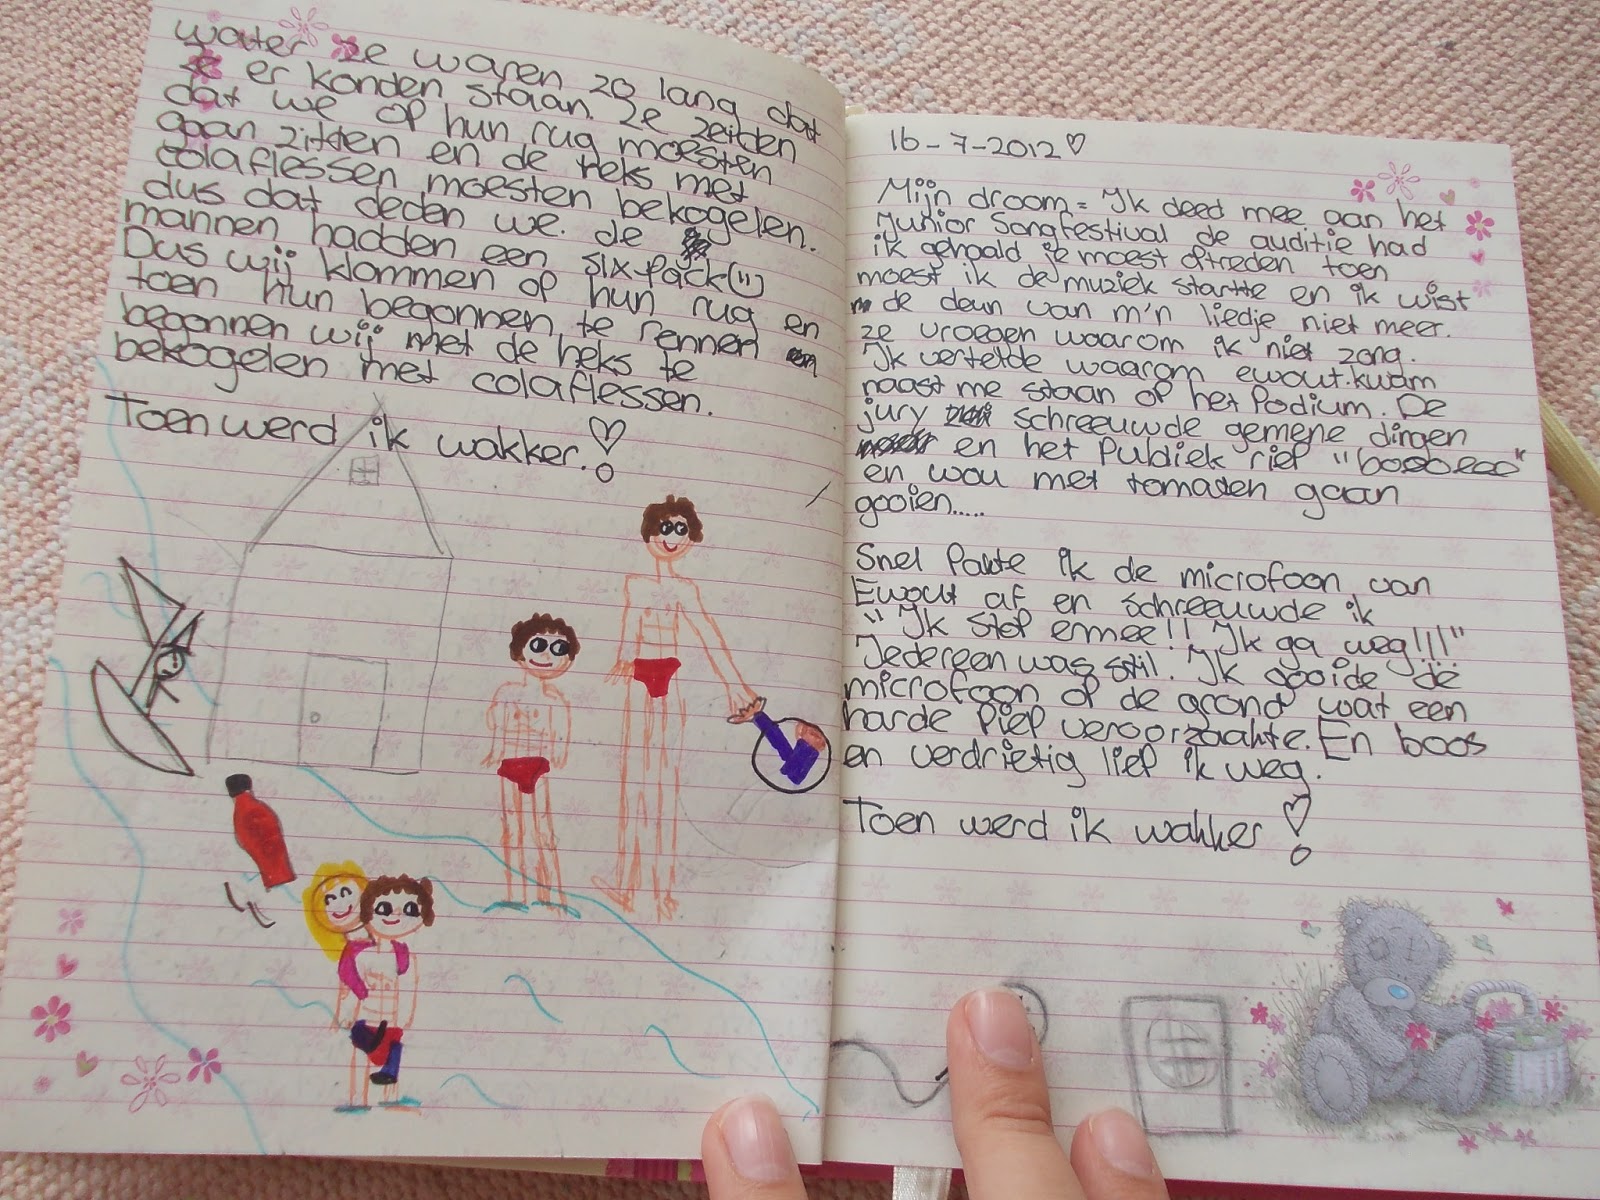 water ze waren zo lang dat
ze er konden staan. Ze zeiden
dat we op hun rug moesten
gaan zitten en de heks met
colaflessen moesten bekogelen.
dus dat deden we. de
mannen hadden een six-pack(")
Dus wij klommen op hun rug en
toen hun begonnen te rennen en
begonnen wij met de heks te
bekogelen met colaflessen.
Toen werd ik wakker!
16-7-2012 ♡
Mijn droom = Ik deed mee aan het
Junior Songfestival de auditie had
ik gehaald je moest optreden toen
moest ik de muziek startte en ik wist
de deun van m'n liedje niet meer.
ze vroegen waarom ik niet zong.
Ik vertelde waarom ewout.kwam
naast me staan op het Podium. De
jury schreeuwde gemene dingen
en het Publiek riep "boeoeoe"
en wou met tomaten gaan
gooien.....
Snel Pakte ik de microfoon van
Ewout af en schreeuwde ik
"Ik stop ermee!! Ik ga weg!!!"
Iedereen was stil. Ik gooide de
microfoon op de grond wat een
harde Piep veroorzaakte. En boos
en verdrietig liep ik weg.
Toen werd ik wakker!